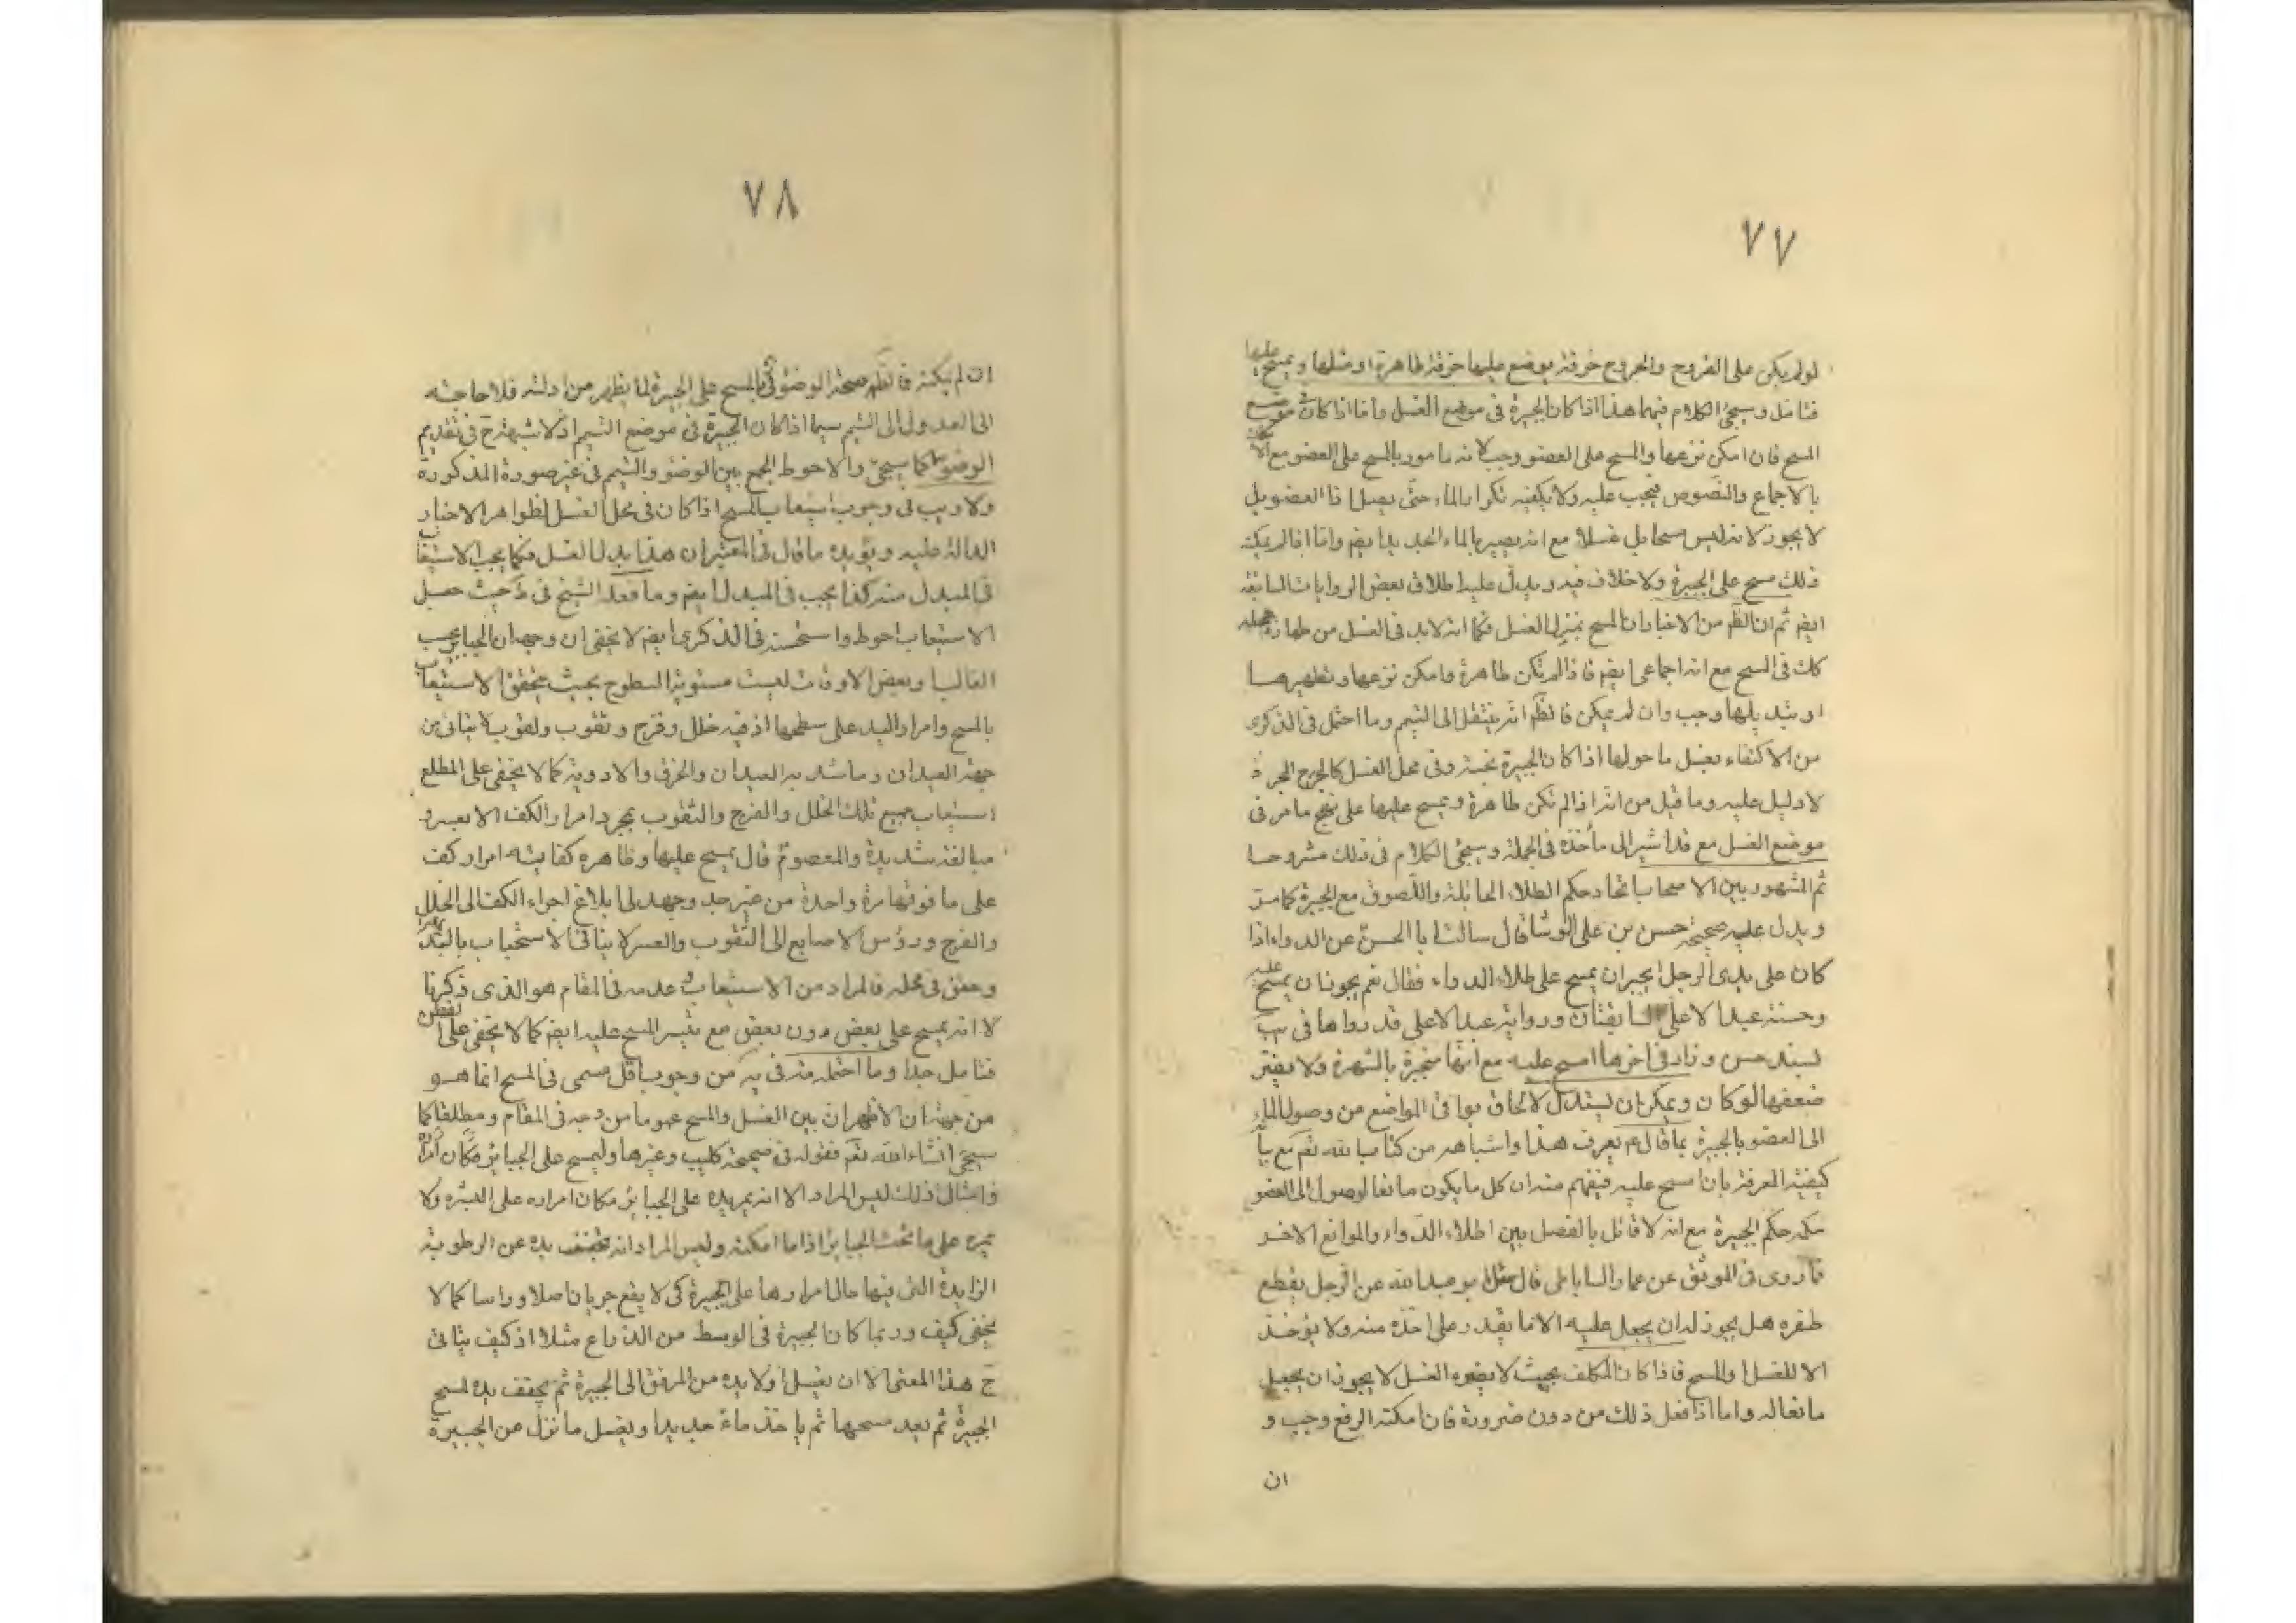 ٧٧
لو لم يكن على القروح والجروح خرقة يوضع عليها خرقة طاهرة او مثلها ويمسح عليها
فتامل وسيجئ الكلام فيها هذا اذا كان الجبيرة في موضع الغسل واما اذا كان في موضع
المسح فان امكن نزعها والمسح على العضو وجب لانه مامور بالمسح على العضو مع
بالاجماع والنصوص فيجب عليه ولا يكفيه تكرار الماء حتى يصل الى العضو بل
لا يجوز لانه ليس مسحا بل غسلا مع انه يصير بالماء الجديد ايضا واما اذا لم يمكنه
ذلك مسح على الجبيرة ولا خلاف فيه ويدل عليه اطلاق بعض الروايات السابقة
ايضا ثم ان الظ من الاخبار ان المسح بمنزلة الغسل فكما انه لابد في الغسل من طهارة محله
كك في المسح مع انه اجماعي ايضا فاذا لم تكن طاهرة وامكن نزعها وتطهيرها
او تبديلها وجب وان لم يمكن فالظ انه ينتقل الى التيمم وما احتمل في الذكرى
من الاكتفاء بغسل ما حولها اذا كان الجبيرة نجسة وفي محل الغسل كالجرح المجرد
لا دليل عليه وما قيل من انه اذا لم تكن طاهرة ويمسح عليها على نهج ما مر في
موضع الغسل مع قد اشير الى مأخذه في الجملة وسيجئ الكلام في ذلك مشروحا
ثم المشهور بين الاصحاب اتحاد حكم الطلاء الحائلة واللصوق مع الجبيرة كما مر
ويدل عليه صحيحة حسن بن علي الوشا قال سالت ابا الحسن عن الدواء اذا
كان على يدي الرجل ايجزيه ان يمسح على طلاء الدواء فقال نعم يجوز ان يمسح عليه
وحسنة عبد الاعلى السابقتان ورواية عبد الاعلى قد رواها في يب
بسند حسن وزاد في اخرها امسح عليه مع انها منجبرة بالشهرة ولا يضر
ضعفها لو كان ويمكن ان يستدل لالحاق بواقي المواضع من وصول الماء
الى العضو بالجبيرة بما قال ع يعرف هذا واشباهه من كتاب الله تعم مع
كيفية المعرفة بان امسح عليه فيفهم منه ان كل ما يكون مانعا لوصول الى العضو
حكمه حكم الجبيرة مع انه لا قائل بالفصل بين اطلاء الدواء والموانع الاخر
فما روى في الموثق عن عمار الساباطي قال سئل ابو عبد الله عن الرجل يقطع
ظفره هل يجوز له ان يجعل عليه الا ما يقدر على اخذه منه ولا يؤخذ
الا للغسل والمسح فاذا كان المكلف بحيث لا يضره الغسل لا يجوز ان يجعل
مانعا له واما اذا فعل ذلك من دون ضرورة فان امكنه الرفع وجب و
ان
٧٨
ان لم يمكنه فالظ صحة الوضوء بالمسح على الجبيرة لما يظهر من ادلته فلا حاجة
الى العدول الى التيمم سيما اذا كان الجبيرة في موضع التيمم اذ لا شبهة ح في تقديم
الوضوء كما سيجئ والاحوط الجمع بين الوضوء والتيمم في غير صورة المذكورة
ولا ريب في وجوب استيعاب المسح اذا كان في محل الغسل لظواهر الاخبار
الدالة عليه ويؤيده ما قال في المعتبر ان هذا بدل الغسل فكما يجب الاستيعاب
في المبدل منه كذا يجب في المبدل ايضا وما فعله الشيخ في ط حيث جعل
الاستيعاب احوط واستحسنه في الذكرى ايضا لا يخفى ان وجهه ان الجباير بحسب
الغالب وبعض الاوقات ليست مستوية السطوح بحيث يتحقق الاستيعاب
بالمسح وامرار اليد على سطحها اذ فيه خلل وفرج وثقوب ولغوب لا يتاتى من
جهة العيدان وما شد به العيدان والخرق والادوية كما لا يخفى على المطلع
استيعاب جميع تلك الخلل والفرج والثقوب بمجرد امرار الكف الا بعسر و
مبالغة شديدة والمعصوم قال يمسح عليها وظاهره كفاية امرار كف
على ما فوقها مرة واحدة من غير جد وجهد في ابلاغ اجزاء الكف الى الخلل
والفرج ورؤس الاصابع الى الثقوب والعسر لا ينافي الاستحباب
وحقق في محله فالمراد من الاستيعاب وعدمه في المقام هو الذي ذكرنا
لا انه يمسح على بعض دون بعض مع تيسر المسح عليه ايضا كما لا يخفى على الفطن
فتامل جدا وما احتمله منه في يه من وجوب اقل مسمى في المسح انما هو
من جهة ان الاظهر ان بين الغسل والمسح عموما من وجه في المقام ومطلقا كما
سيجئ انشاء الله تعم فقوله في صحيحة كليب وغيرها وليمسح على الجبائر
وامثال ذلك ليس المراد الا انه يمر يده على الجبائر مكان امراره على البشرة ولا
يمره على ما تحت الجباير اذا ما امكنه وليس المراد انه يجفف يده عن الرطوبة
الزايدة التي فيها حال امرارها على الجبيرة كي لا يقع جريان اصلا وراسا كما لا
يخفى كيف وربما كان الجبيرة في الوسط من الذراع مثلا اذ كيف يتاتى
ح هذا المعنى الا ان يغسل اولا يده من المرفق الى الجبيرة ثم يجفف يده لمسح
الجبيرة ثم بعد مسحها ثم ياخذ ماء جديدا ويغسل ما نزل عن الجبيرة